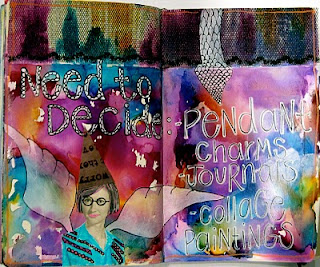 Need to
DECIDE:
PENDANT
CHARMS
-JOURNALS
-COLLAGE
PAINTINGS